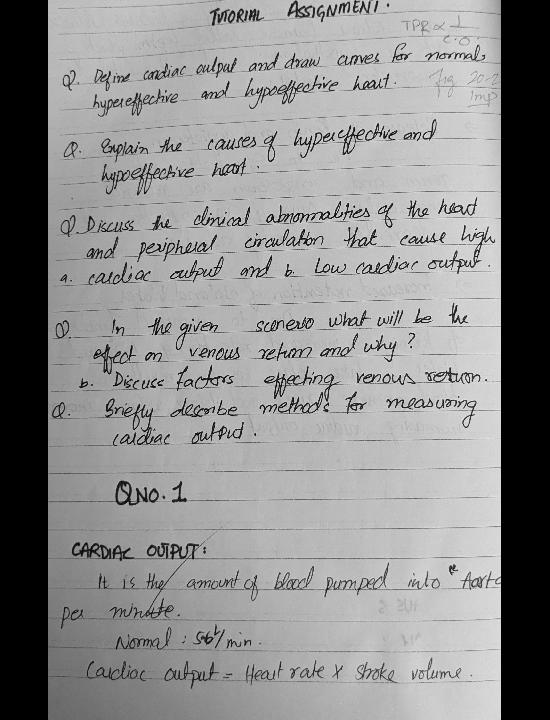 TUTORIAL ASSIGNMENT.
TPR ∝ 1/C.O.
Q. Define cardiac output and draw curves for normal,
hypereffective and hypoeffective heart. fig 20-2
Imp
Q. Explain the causes of hypereffective and
hypoeffective heart.
Q. Discuss the clinical abnormalities of the heart
and peripheral circulation that cause high
a. cardiac output and b. Low cardiac output.
Q. In the given scenerio what will be the
effect on venous return and why?
b. Discuss factors effecting venous return.
Q. Briefly describe methods for measuring
cardiac output.
QNO. 1
CARDIAC OUTPUT:
It is the amount of blood pumped into the Aorta
per minute.
Normal: 5-6 L/min.
Cardiac output = Heart rate x stroke volume.